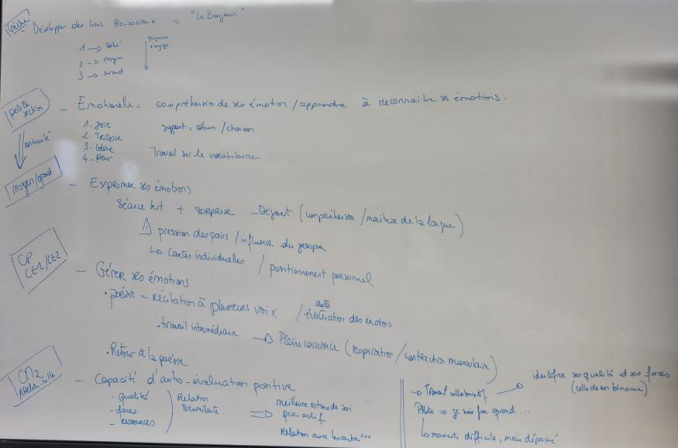 Développer des liens = "Le Bonjour"
1 → Bébé
2 → moyen
3 → Grand
petite section
- Emotionelle = compréhension de ses émotion / apprendre à reconnaitre ses émotions.
1. Joie
2. Tristesse
3. Colère
4. Peur
support = album / chanson
Travail sur le vocabulaire
continuité
moyen/grand
- Exprimer ses émotions
Séance kit + SURPRISE (compréhension / maitrise de la langue)
pression des pairs / influence du groupe
↳ Cartes individuelles / positionnement personnel
CP CE1/CE2
- Gérer ses émotions
• poésie - Récitation à plusieurs voix / auto évaluation des émotions
• travail intermédiaire → Pleine conscience (respiration / contraction musculaire)
• Retour à la poésie
CM2
- Capacité d'auto-évaluation positive
- qualité
- forces
- ressources
Relation
meilleure estime de soi
Relation avec les autres
→ Travail collaboratif → ses qualité et ses forces
(celle de son binôme)
Photo .. je suis fier quand ...
les moments difficile, mais dépassé